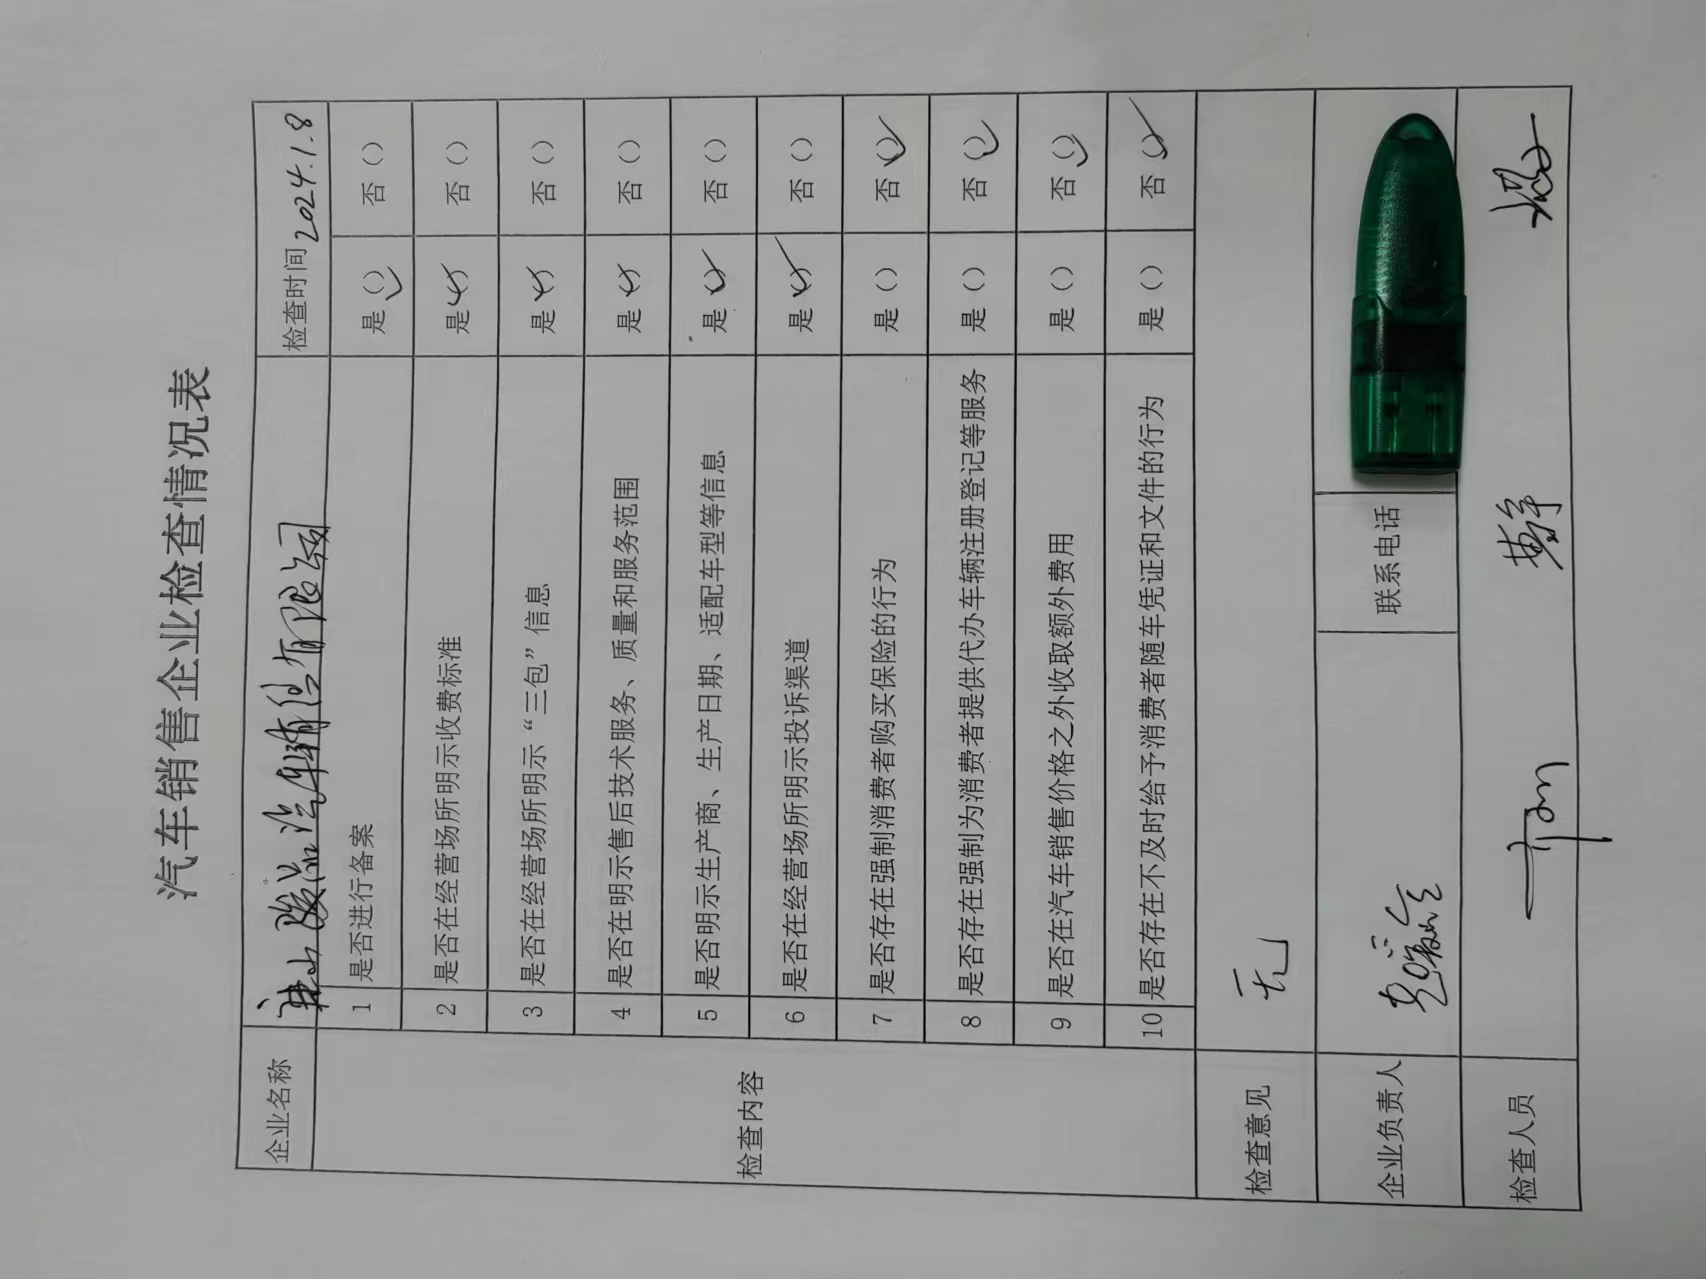 汽车销售企业检查情况表
企业名称 唐山 汽车销售有限公司 检查时间 2024.1.8
检查内容
1 是否进行备案 是(✓) 否()
2 是否在经营场所明示收费标准 是(✓) 否()
3 是否在经营场所明示“三包”信息 是(✓) 否()
4 是否在明示售后技术服务、质量和服务范围 是(✓) 否()
5 是否明示生产商、生产日期、适配车型等信息 是(✓) 否()
6 是否在经营场所明示投诉渠道 是(✓) 否()
7 是否存在强制消费者购买保险的行为 是() 否(✓)
8 是否存在强制为消费者提供代办车辆注册登记等服务 是() 否(✓)
9 是否在汽车销售价格之外收取额外费用 是() 否(✓)
10 是否存在不及时给予消费者随车凭证和文件的行为 是() 否(✓)
检查意见 无
企业负责人 联系电话
检查人员 黄静